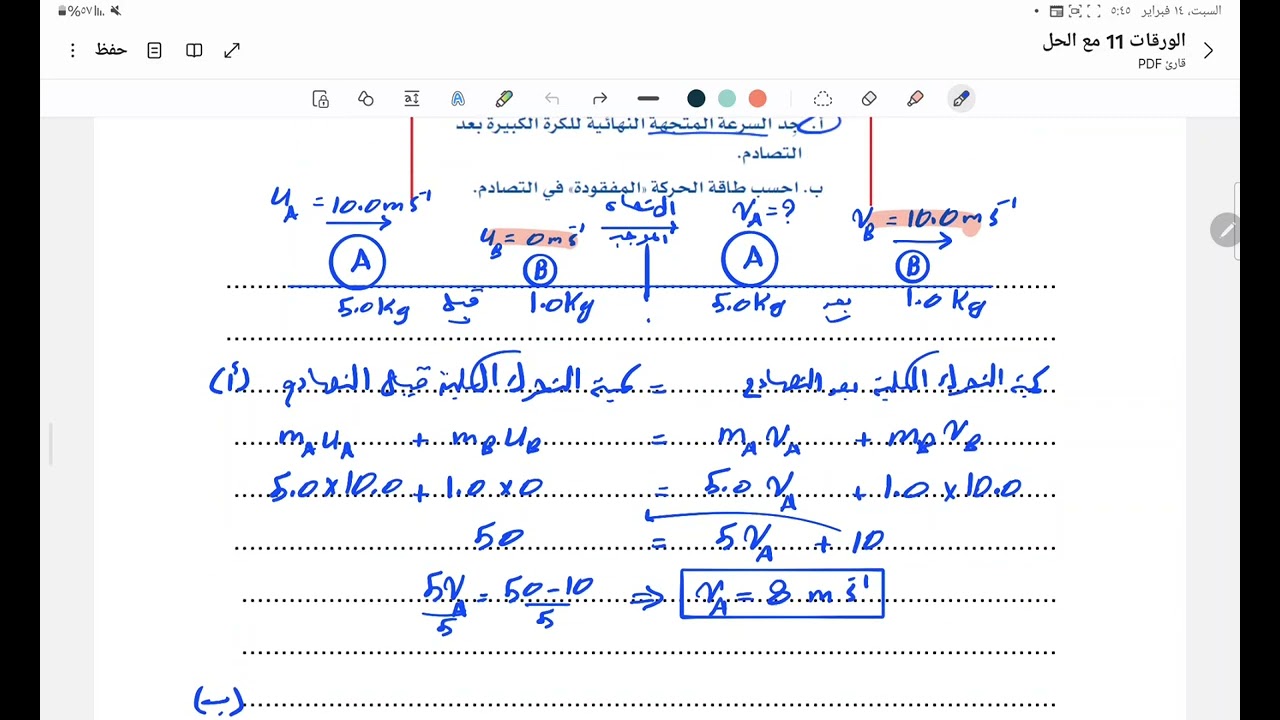 السبت، ١٤ فبراير ٥:٤٥
٥٧%
الورقات 11 مع الحل
قارئ PDF
حفظ
أ. جد السرعة المتجهة النهائية للكرة الكبيرة بعد
التصادم.
ب. احسب طاقة الحركة «المفقودة» في التصادم.
u_A = 10.0 m s⁻¹
u_B = 0 m s⁻¹
الاتجاه
الموجب
v_A = ?
v_B = 10.0 m s⁻¹
A B A B
5.0 Kg قبل 1.0 Kg 5.0 Kg بعد 1.0 Kg
(أ) كمية التحرك الكلية قبل التصادم = كمية التحرك الكلية بعد التصادم
m_A u_A + m_B u_B = m_A v_A + m_B v_B
5.0 × 10.0 + 1.0 × 0 = 5.0 v_A + 1.0 × 10.0
50 = 5 v_A + 10
5v_A/5 = 50-10/5 ⇒ v_A = 8 m s⁻¹
(ب)